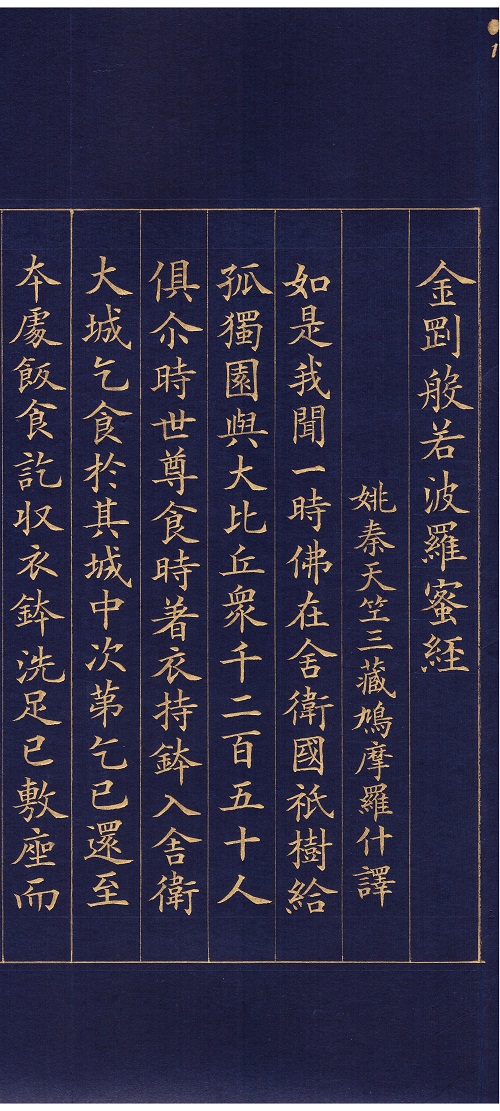 1
金剛般若波羅蜜経
姚秦天竺三藏鳩摩羅什譯
如是我聞一時佛在舍衛國祇樹給
孤獨園與大比丘衆千二百五十人
俱尒時世尊食時著衣持鉢入舍衛
大城乞食扵其城中次第乞已還至
夲處飯食訖収衣鉢洗足已敷座而